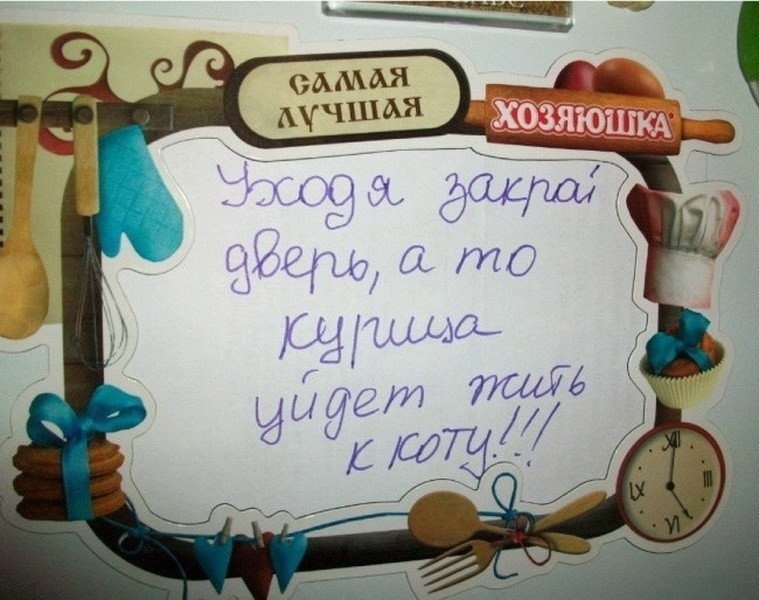 САМАЯ
ЛУЧШАЯ
ХОЗЯЮШКА
Уходя закрой
дверь, а то
курица
уйдет жить
к коту!!!
XII
III
VI
IX